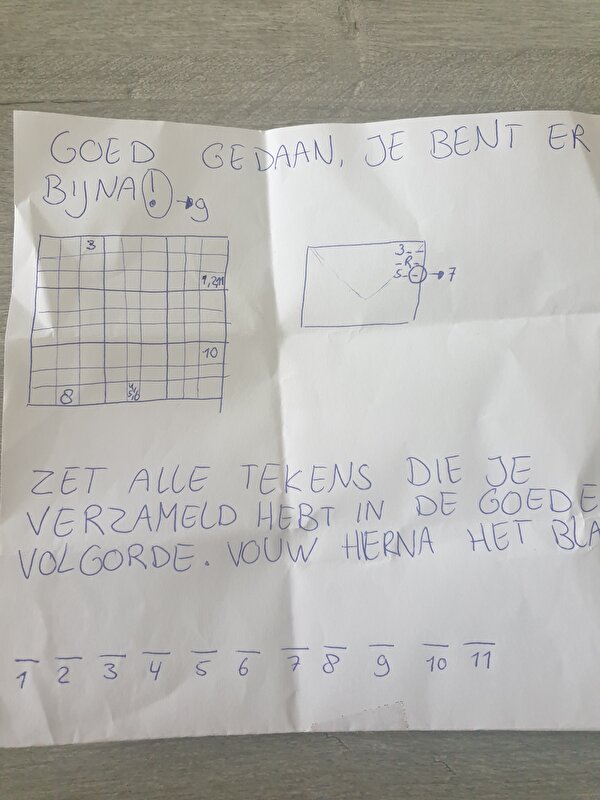 GOED GEDAAN, JE BENT ER
BIJNA! → 9
3
1,2,11
10
8
3 - -
- R -
S - - → 7
ZET ALLE TEKENS DIE JE
VERZAMELD HEBT IN DE GOEDE
VOLGORDE. VOUW HIERNA HET BLA
1 2 3 4 5 6 7 8 9 10 11